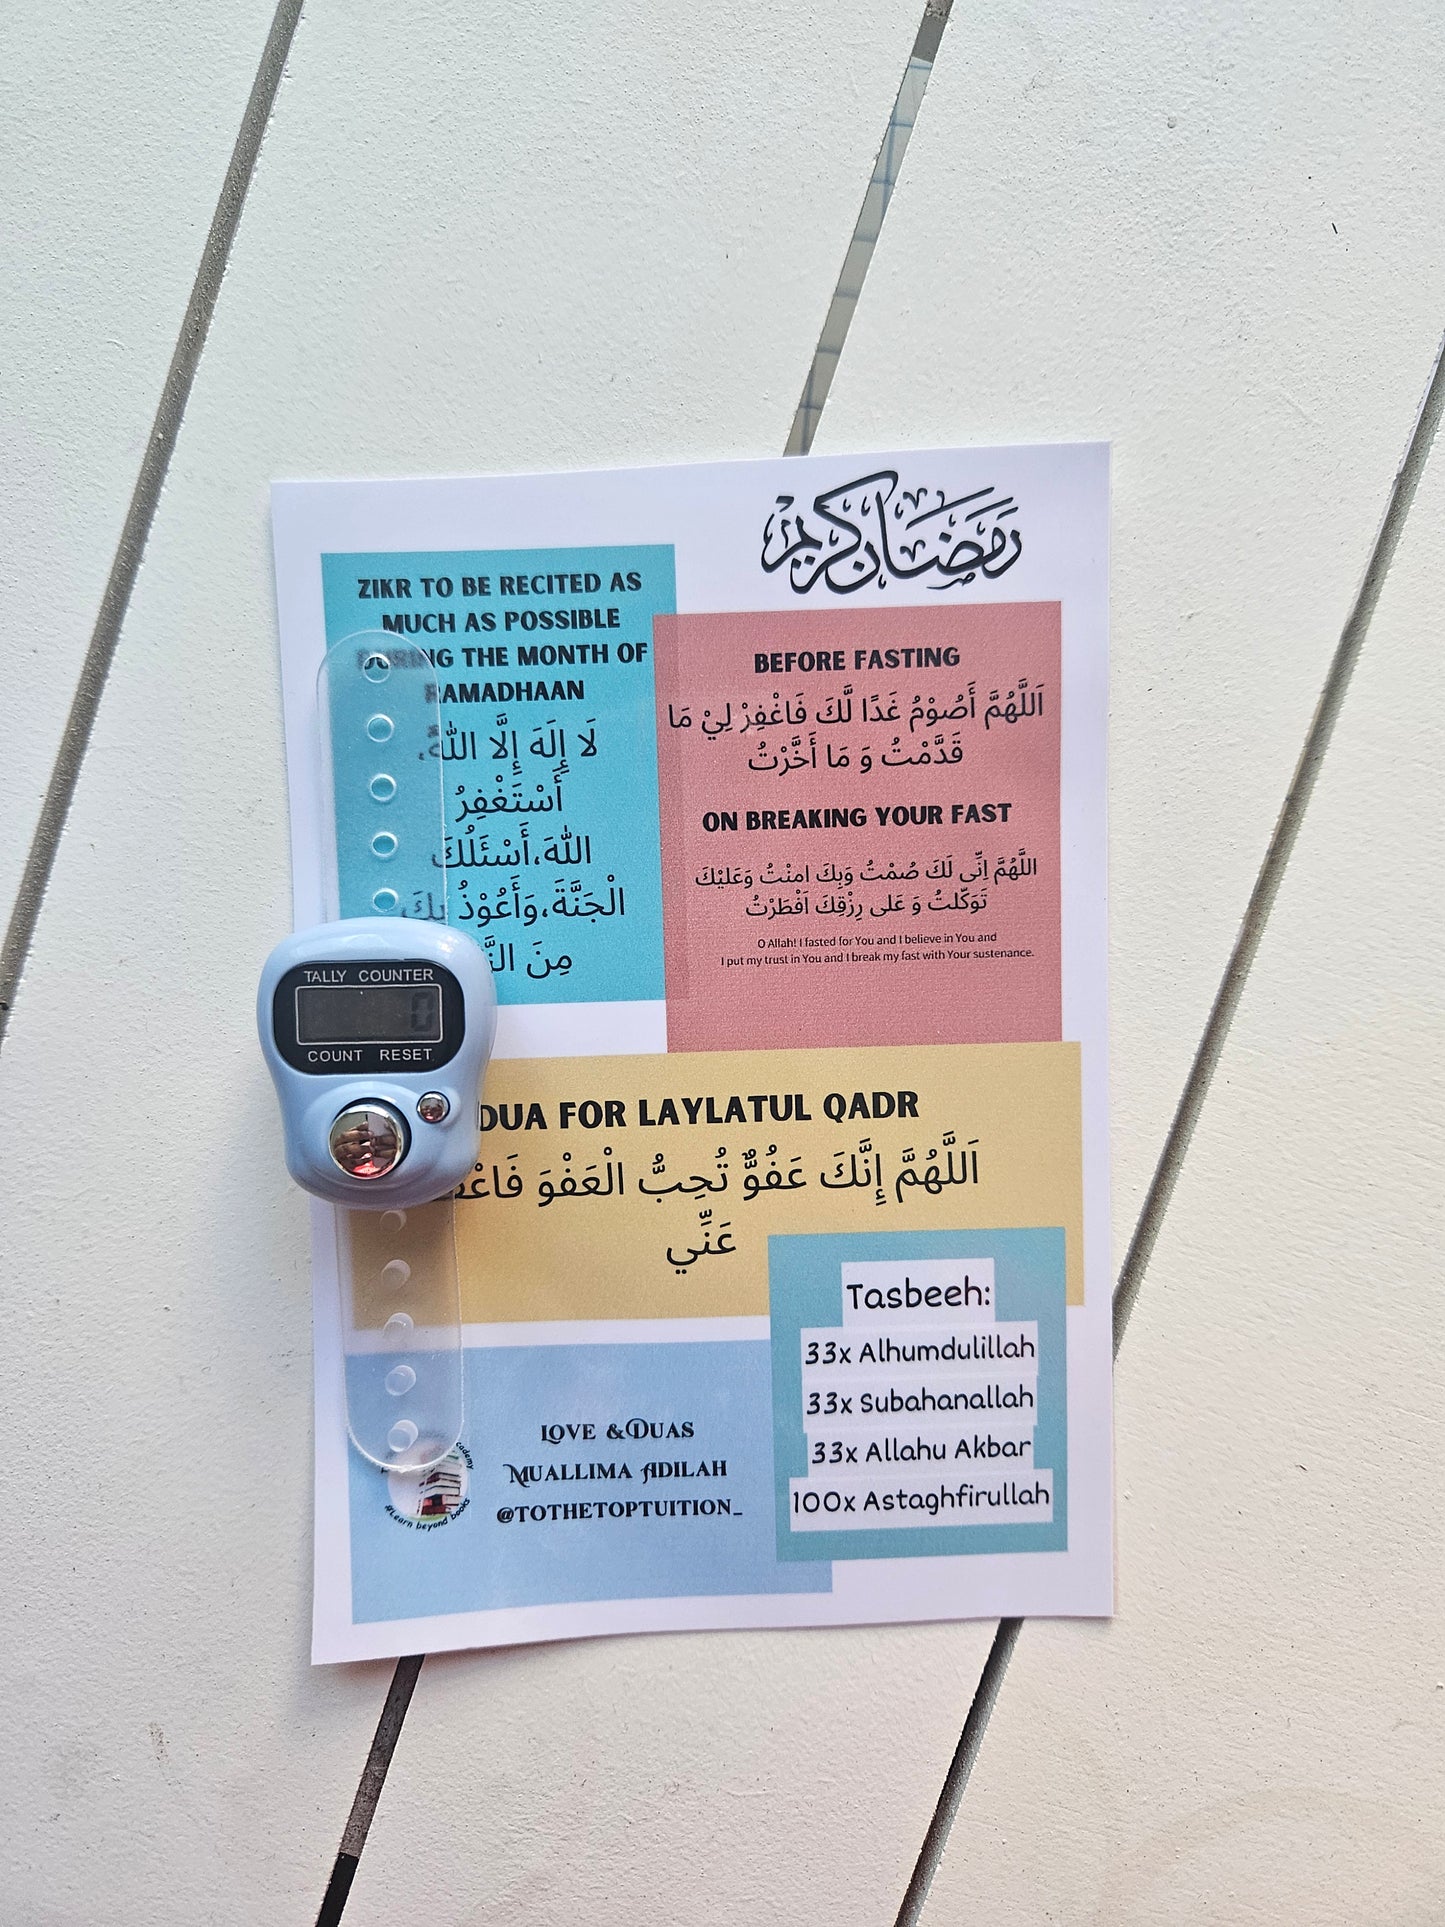 رمضان كريم
ZIKR TO BE RECITED AS
MUCH AS POSSIBLE
DURING THE MONTH OF
RAMADHAAN
لَا إِلَهَ إِلَّا اللهُ،
أَسْتَغْفِرُ
اللهَ،أَسْئَلُكَ
الْجَنَّةَ،وَأَعُوْذُ بِكَ
مِنَ
BEFORE FASTING
اَللَّهُمَّ أَصُوْمُ غَدًا لَّكَ فَاغْفِرْ لِيْ مَا
قَدَّمْتُ وَ مَا أَخَّرْتُ
ON BREAKING YOUR FAST
اللَّهُمَّ اِنِّى لَكَ صُمْتُ وَبِكَ امنْتُ وَعَليْكَ
تَوَكّلتُ وَ عَلى رِزْقِكَ اَفْطَرْتُ
O Allah! I fasted for You and I believe in You and
I put my trust in You and I break my fast with Your sustenance.
TALLY COUNTER
0
COUNT RESET
DUA FOR LAYLATUL QADR
اَللَّهُمَّ إِنَّكَ عَفُوٌّ تُحِبُّ الْعَفْوَ
عَنِّي
Tasbeeh:
33x Alhumdulillah
33x Subahanallah
33x Allahu Akbar
100x Astaghfirullah
LOVE & DUAS
MUALLIMA ADILAH
@TOTHETOPTUITION_
#Learn beyond books